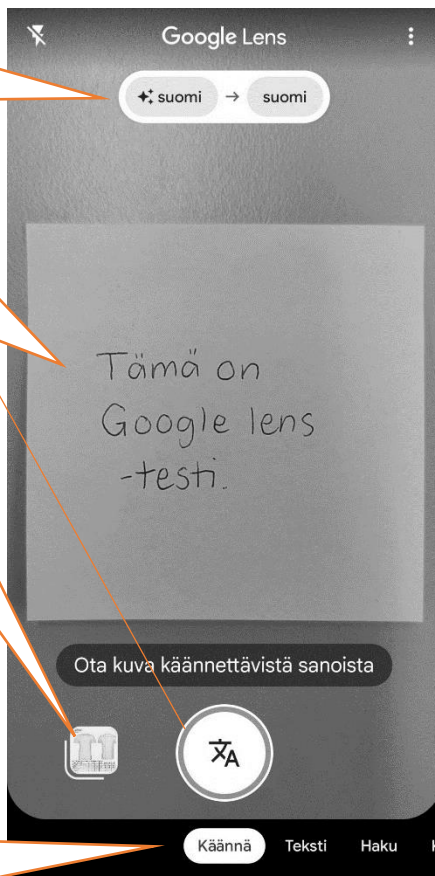 Google Lens
suomi → suomi
Tämä on
Google lens
-testi.
Ota kuva käännettävistä sanoista
Käännä Teksti Haku